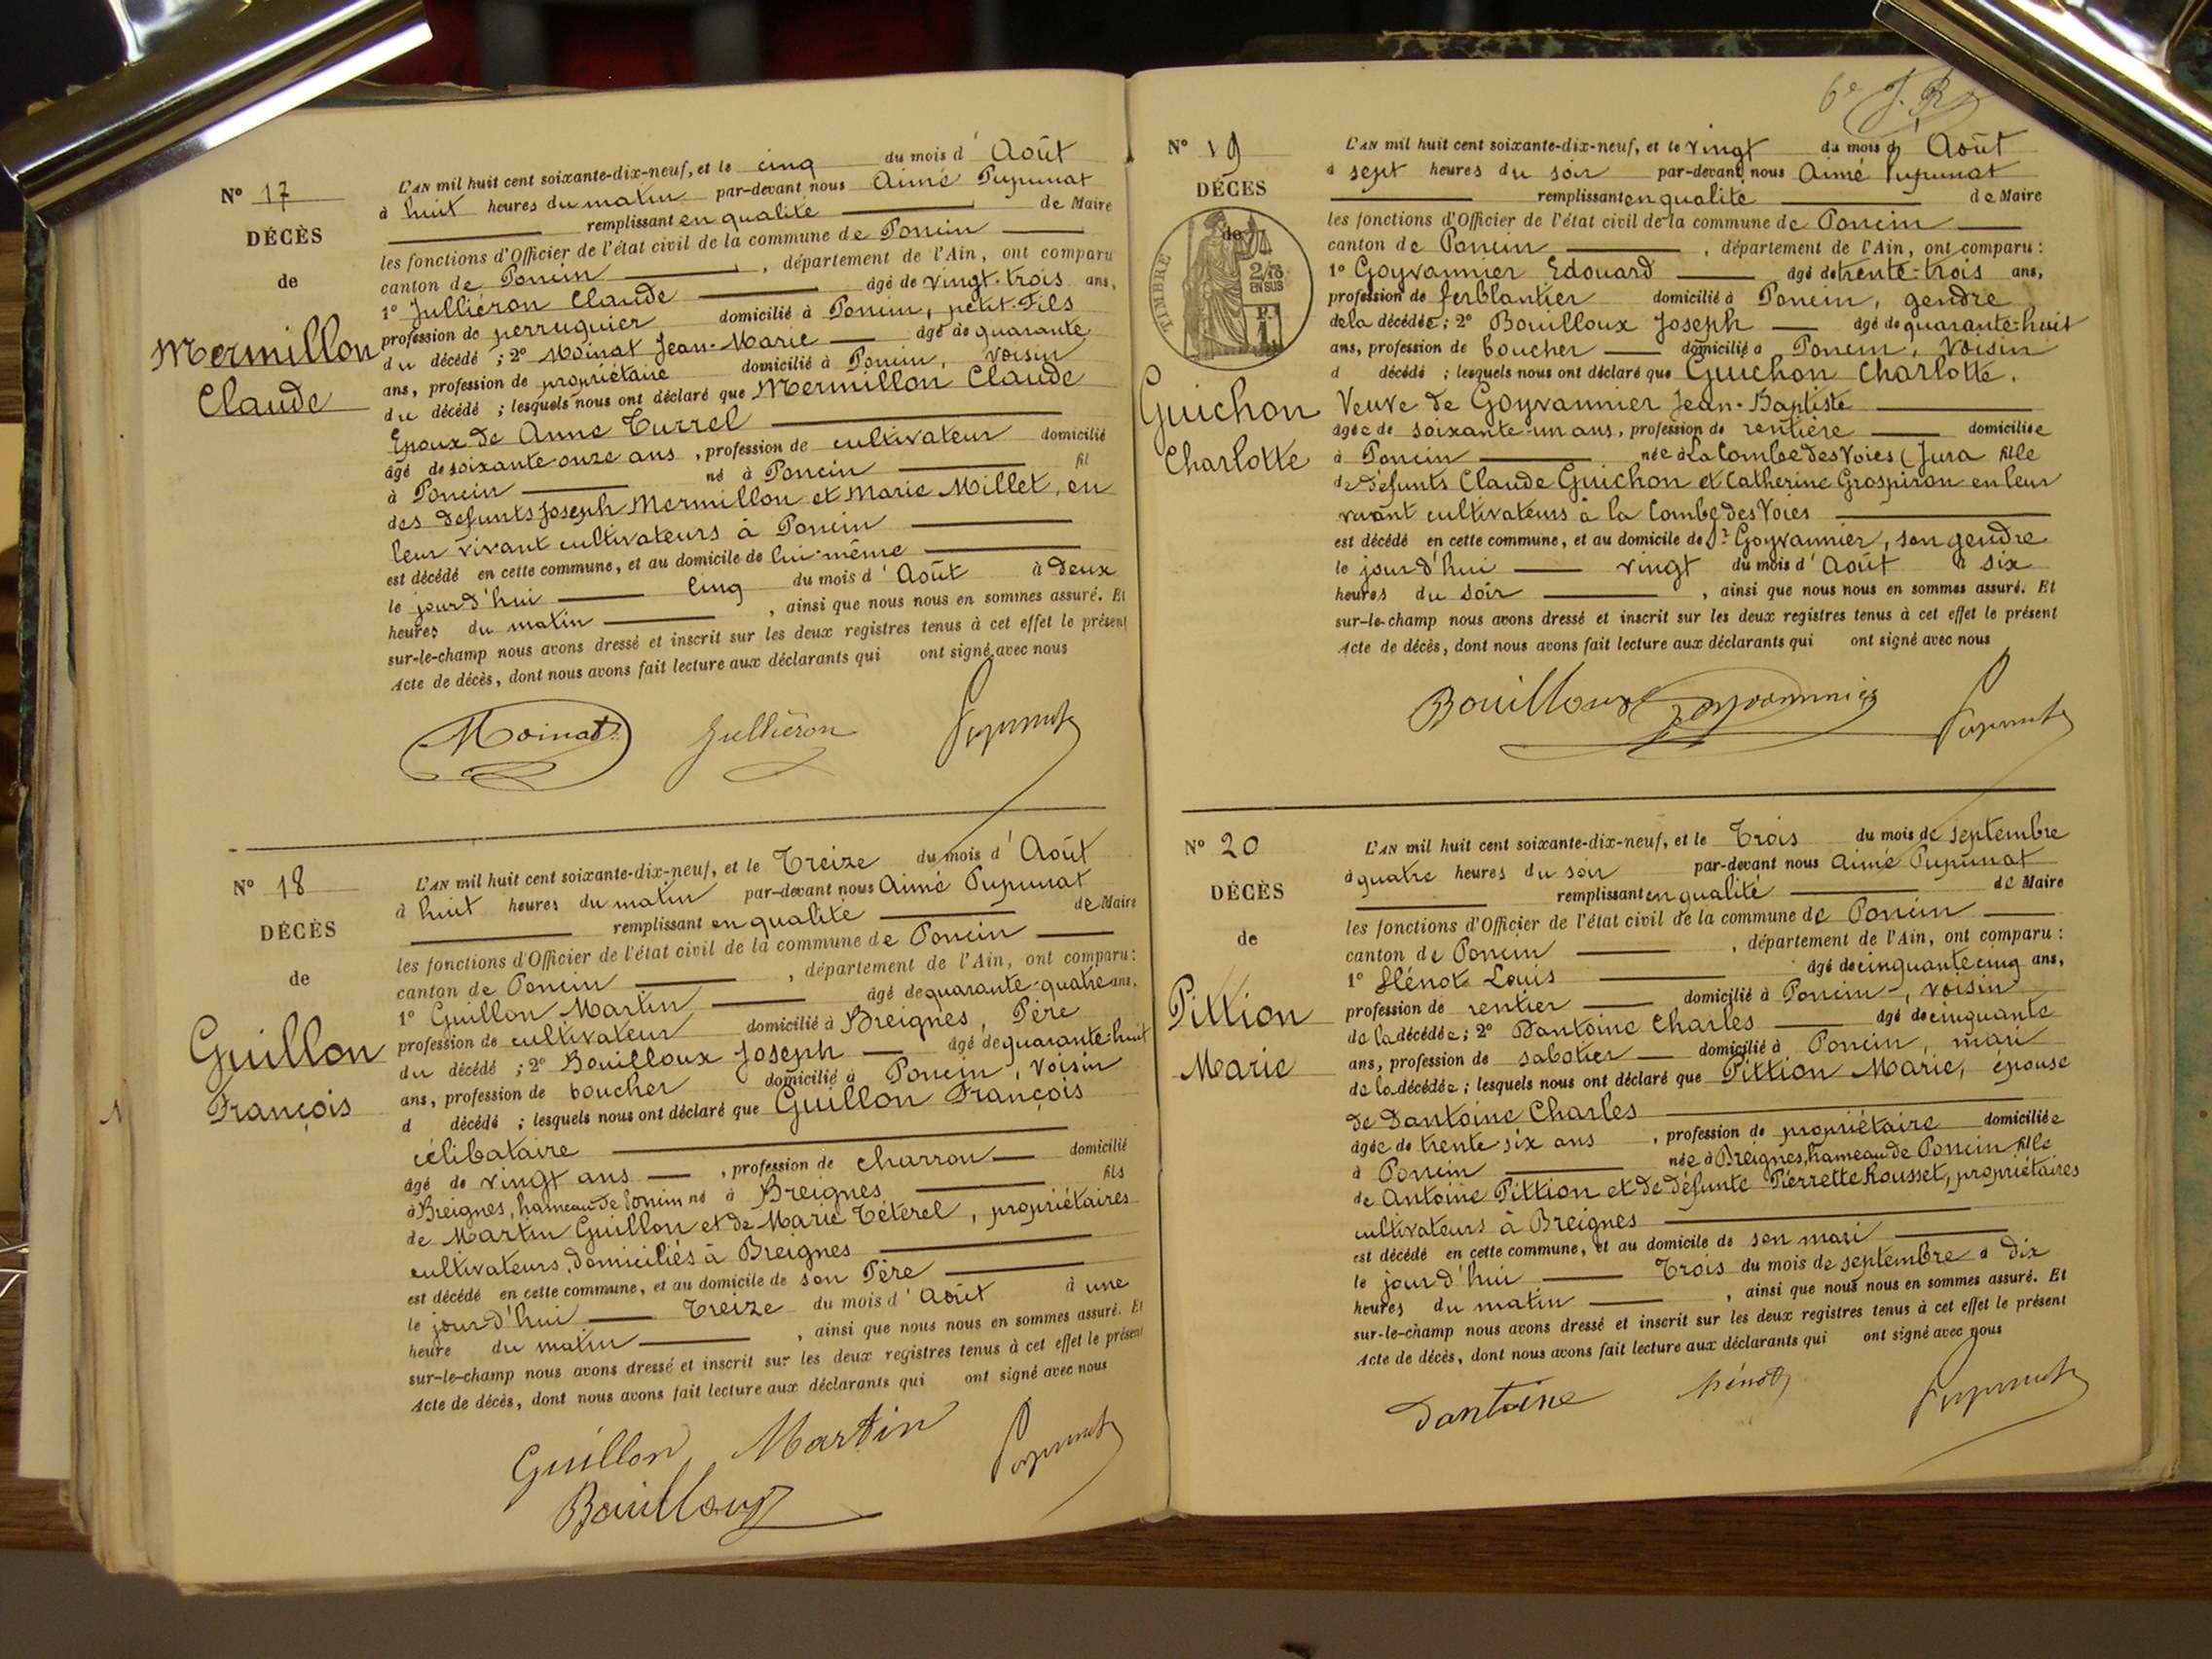 N° 17
DÉCÈS
de
Mermillon
Claude
L'AN mil huit cent soixante-dix-neuf, et le cinq du mois d' Août
à huit heures du matin par-devant nous Aimé Pupunat
remplissant en qualité de Maire
les fonctions d'Officier de l'état civil de la commune de Poncin
canton de Poncin, département de l'Ain, ont comparu
1° Julliéron Claude âgé de vingt-trois ans,
profession de perruquier domicilié à Poncin, petit-Fils
du décédé ; 2° Moinat Jean-Marie âgé de quarante
ans, profession de propriétaire domicilié à Poncin, voisin
du décédé ; lesquels nous ont déclaré que Mermillon Claude
Epoux de Anne Turrel
âgé de soixante-onze ans, profession de cultivateur domicilié
à Poncin né à Poncin fil
des défunts Joseph Mermillon et Marie Millet, en
leur vivant cultivateurs à Poncin
est décédé en cette commune, et au domicile de lui-même
le jourd'hui cinq du mois d' Août à deux
heures du matin, ainsi que nous nous en sommes assuré. Et
sur-le-champ nous avons dressé et inscrit sur les deux registres tenus à cet effet le présent
Acte de décès, dont nous avons fait lecture aux déclarants qui ont signé avec nous
Moinat Julliéron Pupunat
N° 18
DÉCÈS
de
Guillon
François
L'AN mil huit cent soixante-dix-neuf, et le Treize du mois d' Août
à huit heures du matin par-devant nous Aimé Pupunat
remplissant en qualité de Maire
les fonctions d'Officier de l'état civil de la commune de Poncin
canton de Poncin, département de l'Ain, ont comparu :
1° Guillon Martin âgé de quarante-quatre ans,
profession de cultivateur domicilié à Breignes, Père
du décédé ; 2° Bouilloux Joseph âgé de quarante-huit
ans, profession de boucher domicilié à Poncin, voisin
d décédé ; lesquels nous ont déclaré que Guillon François
célibataire
âgé de vingt ans, profession de charron domicilié
à Breignes, hameau de Poncin né à Breignes fils
de Martin Guillon et de Marie Téterel, propriétaires
cultivateurs, domiciliés à Breignes
est décédé en cette commune, et au domicile de son Père
le jourd'hui Treize du mois d' Août à une
heure du matin, ainsi que nous nous en sommes assuré. Et
sur-le-champ nous avons dressé et inscrit sur les deux registres tenus à cet effet le présent
Acte de décès, dont nous avons fait lecture aux déclarants qui ont signé avec nous
Guillon Martin Pupunat
Bouilloux
6e J. R
N° 19
DÉCÈS
de
TIMBRE
2/10
EN SUS
Guichon
Charlotte
L'AN mil huit cent soixante-dix-neuf, et le vingt du mois d' Août
à sept heures du soir par-devant nous Aimé Pupunat
remplissant en qualité de Maire
les fonctions d'Officier de l'état civil de la commune de Poncin
canton de Poncin, département de l'Ain, ont comparu :
1° Goyvannier Edouard âgé de trente-trois ans,
profession de ferblantier domicilié à Poncin, gendre
de la décédée ; 2° Bouilloux Joseph âgé de quarante-huit
ans, profession de boucher domicilié à Poncin, voisin
d décédé ; lesquels nous ont déclaré que Guichon Charlotte,
Veuve de Goyvannier Jean-Baptiste
âgée de soixante-un ans, profession de rentière domiciliée
à Poncin née à La Combe des Voies (Jura fille
de défunts Claude Guichon et Catherine Grospiron en leur
vivant cultivateurs à la Combe des Voies
est décédé en cette commune, et au domicile de Sr Goyvannier, son gendre
le jourd'hui vingt du mois d' Août à six
heures du soir, ainsi que nous nous en sommes assuré. Et
sur-le-champ nous avons dressé et inscrit sur les deux registres tenus à cet effet le présent
Acte de décès, dont nous avons fait lecture aux déclarants qui ont signé avec nous
Bouilloux Goyvannier Pupunat
N° 20
DÉCÈS
de
Pittion
Marie
L'AN mil huit cent soixante-dix-neuf, et le Trois du mois de septembre
à quatre heures du soir par-devant nous Aimé Pupunat
remplissant en qualité de Maire
les fonctions d'Officier de l'état civil de la commune de Poncin
canton de Poncin, département de l'Ain, ont comparu :
1° Hénot Louis âgé de cinquante cinq ans,
profession de rentier domicilié à Poncin, voisin
de la décédée ; 2° Dantoine Charles âgé de cinquante
ans, profession de sabotier domicilié à Poncin, mari
de la décédée ; lesquels nous ont déclaré que Pittion Marie, épouse
de Dantoine Charles
âgée de trente-six ans, profession de propriétaire domiciliée
à Poncin née à Breignes, hameau de Poncin fille
de Antoine Pittion et de défunte Pierrette Rousset, propriétaires
cultivateurs à Breignes
est décédé en cette commune, et au domicile de son mari
le jourd'hui Trois du mois de septembre à dix
heures du matin, ainsi que nous nous en sommes assuré. Et
sur-le-champ nous avons dressé et inscrit sur les deux registres tenus à cet effet le présent
Acte de décès, dont nous avons fait lecture aux déclarants qui ont signé avec nous
Dantoine Hénot Pupunat